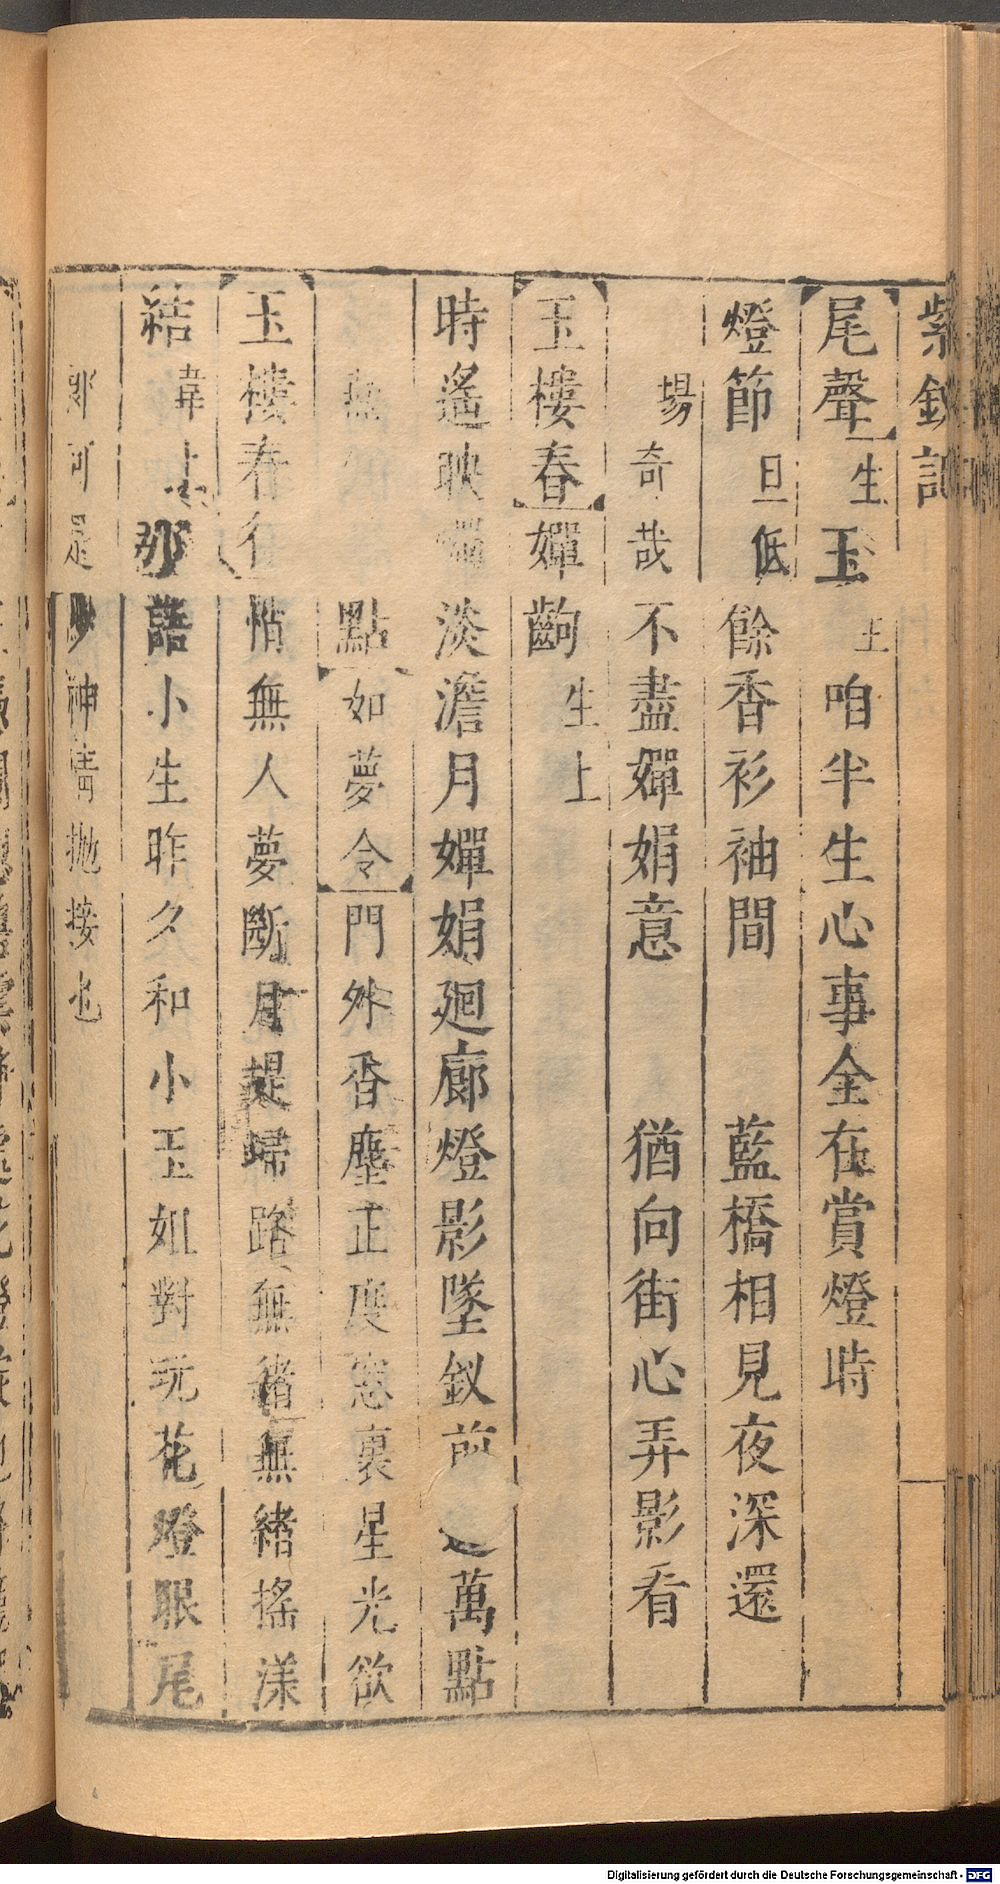 紫釵記
尾聲 生 玉 咱半生心事全在賞燈時
燈節 旦低 餘香衫袖間 藍橋相見夜深還
場 奇哉 不盡嬋娟意 猶向街心弄影看
玉樓春 嬋 齣 生上
時遙映 淡澹月嬋娟廻廊燈影墜釵前 萬點
點 如夢令 門外香塵正度窓裏星光欲
玉樓春 悄無人夢斷月 歸路無緒無緒搖漾
結 韋上 那語小生昨夕和小玉如對玩花燈眼尾
那可是 神情抛接也
Digitalisierung gefördert durch die Deutsche Forschungsgemeinschaft - DFG